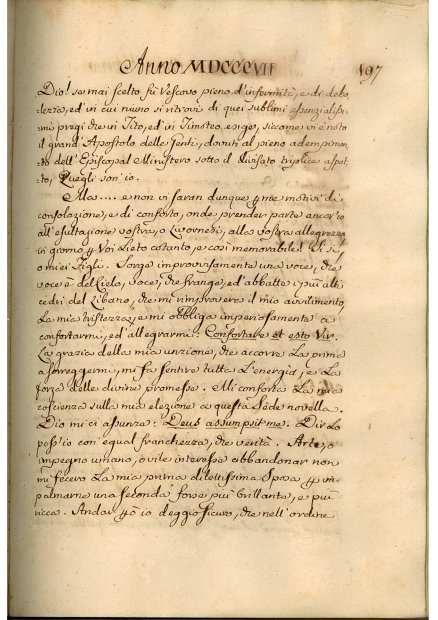 Anno MDCCCVII
197
Dio! se mai scelto fù Vescovo pieno d'infermità, e di debo
lezza, ed in cui niuno si ritrovi di quei sublimi essenzialissi
mi pregi che in Tito, ed in Timoteo esige, siccome vi è noto
il grand'Apostolo delle Genti, dovuti al pieno adempimen
to dell'Episcopal Ministero sotto il divisato triplice aspet
to, Quegli son'io.
Ma.... e non vi saran dunque per me motivi di
consolazione, e di conforto, onde prender parte ancor'io
all'esultazione vostra, o Livornesi, alla vostra allegrezza
in giorno per Voi lieto cotanto, e così memorabile! Sì
o miei Figli. Sorge improvvisamente una voce, che
voce è del Cielo, voce, che frange, ed abbatte i più alti
cedri del Libano, che mi rimprovera il mio avvilimento,
la mia tristezza, e mi obbliga imperiosamente a
confortarmi, ed allegrarmi: Confortare et esto Vir.
La grazia della mia unzione, che accorre la prima
a sorreggermi, mi fa sentire tutta l'energia, e la
forza delle divine promesse. Mi conforta la mia
coscienza sulla mia elezione a questa Sede novella.
Dio mi ci assunse: Deus assumpsit me. Dir lo
poss'io con egual franchezza, che verità. Arte, o
impegno umano, o vile interesse abbandonar non
mi fecero la mia prima dilettissima Sposa per im
palmarne una seconda forse più brillante, e più
ricca. Andar però io deggio sicuro, che nell'ordine